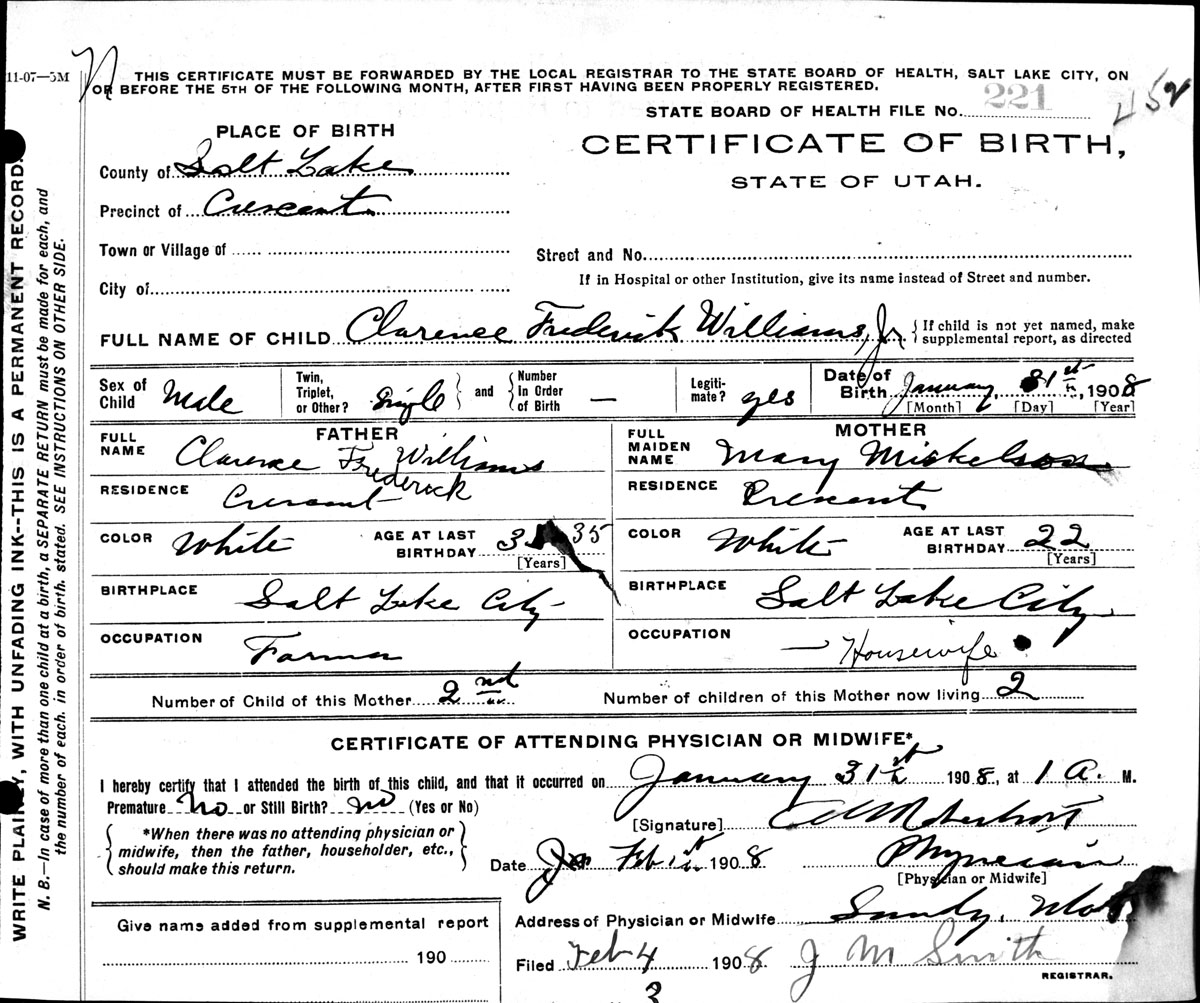 11-07—5M
THIS CERTIFICATE MUST BE FORWARDED BY THE LOCAL REGISTRAR TO THE STATE BOARD OF HEALTH, SALT LAKE CITY, ON
OR BEFORE THE 5TH OF THE FOLLOWING MONTH, AFTER FIRST HAVING BEEN PROPERLY REGISTERED.
STATE BOARD OF HEALTH FILE No. 221
452
PLACE OF BIRTH
CERTIFICATE OF BIRTH,
STATE OF UTAH.
County of Salt Lake
Precinct of Crescent
Town or Village of
Street and No.
If in Hospital or other Institution, give its name instead of Street and number.
City of
FULL NAME OF CHILD Clarence Frederick Williams, Jr. {If child is not yet named, make
supplemental report, as directed
Sex of Child Male Twin, Triplet, or Other? Single and Number In Order of Birth — Legiti-mate? yes Date of Birth January, 31st, 1908
[Month] [Day] [Year]
FATHER
FULL NAME Clarence Frederick Williams
RESIDENCE Crescent
COLOR White AGE AT LAST BIRTHDAY 35
[Years]
BIRTHPLACE Salt Lake City
OCCUPATION Farmer
MOTHER
FULL MAIDEN NAME Mary Mickelson
RESIDENCE Crescent
COLOR White AGE AT LAST BIRTHDAY 22
[Years]
BIRTHPLACE Salt Lake City
OCCUPATION — Housewife
Number of Child of this Mother 2nd Number of children of this Mother now living 2
CERTIFICATE OF ATTENDING PHYSICIAN OR MIDWIFE*
I hereby certify that I attended the birth of this child, and that it occurred on January 31st 1908, at 1 A. M.
Premature No or Still Birth? no (Yes or No)
[Signature]
*When there was no attending physician or
midwife, then the father, householder, etc.,
should make this return.
Date Feb 1st 1908 Physician
[Physician or Midwife]
Address of Physician or Midwife Sandy,
Give name added from supplemental report
190
Filed Feb 4 1908 J M Smith
REGISTRAR.
3
WRITE PLAINLY, WITH UNFADING INK--THIS IS A PERMANENT RECORD.
N. B.—In case of more than one child at a birth, a SEPARATE RETURN must be made for each, and
the number of each. in order of birth. stated. SEE INSTRUCTIONS ON OTHER SIDE.